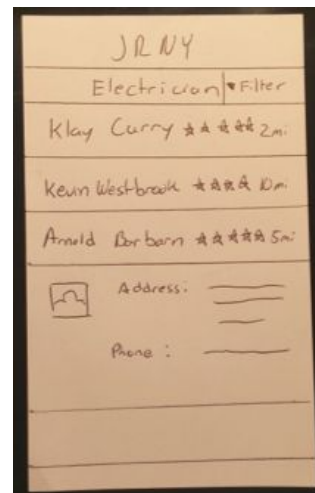 JRNY
Electrician ▾ Filter
Klay Curry ★★★★★ 2mi
Kevin Westbrook ★★★★ 10mi
Arnold Barbarn ★★★★★ 5mi
Address:
Phone :